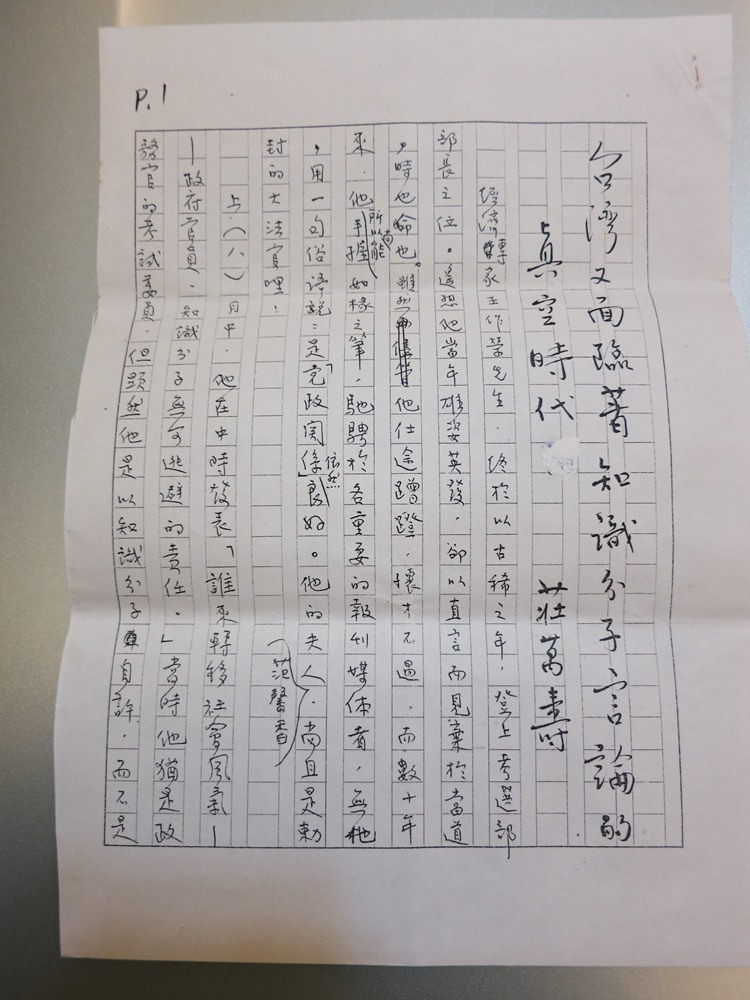 P.1
台灣又面臨著知識分子言論的
真空時代 莊萬壽
經濟專家王作榮先生，終於以古稀之年，登上考選部
部長之位。遥想他當年雄姿英發，卻以直言而見棄於當道
，時也命也。雖然他仕途蹭蹬，懷才不遇，而數十年
來，他所以能手握如椽之筆，馳騁於各重要的報刊媒体者，無他
，用一句俗語說：是「党政関係」依然良好。他的夫人（范馨香），尚且是勅
封的大法官哩！
上（八）月中，他在中時發表「誰來轉移社會風氣—
—政府官員、知識分子無可逃避的責任。」當時他猶是政
務官的考試委員，但顯然他是以知識分子自許，而不是